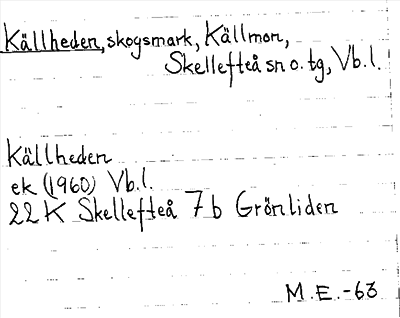 Källheden, skogsmark, Källmon,
Skellefteå sn o. tg, Vb.l.
Källheden
ek (1960) Vb.l.
22 K Skellefteå 7 b Grönliden
M.E.-63